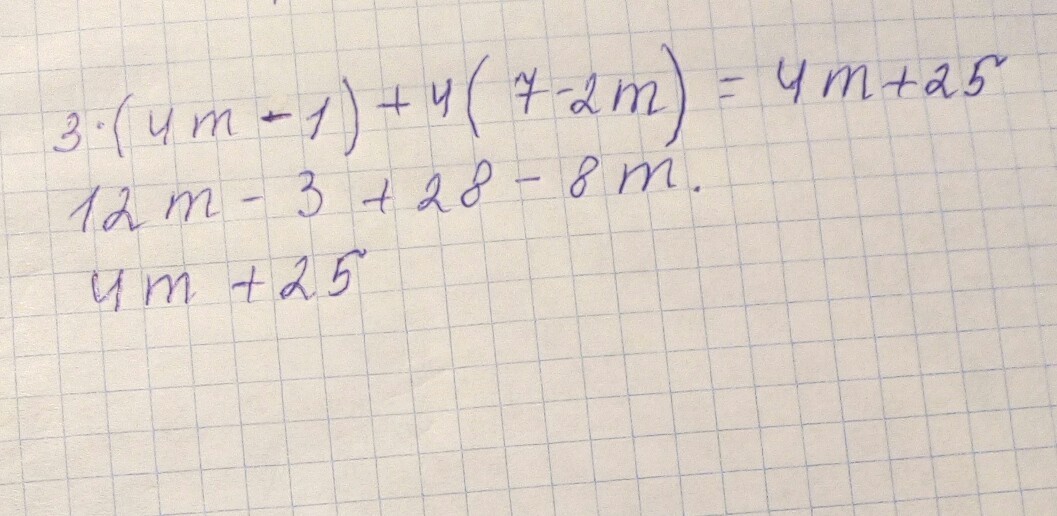 3·(4m-1)+4(7-2m)=4m+25
12m-3+28-8m.
4m+25